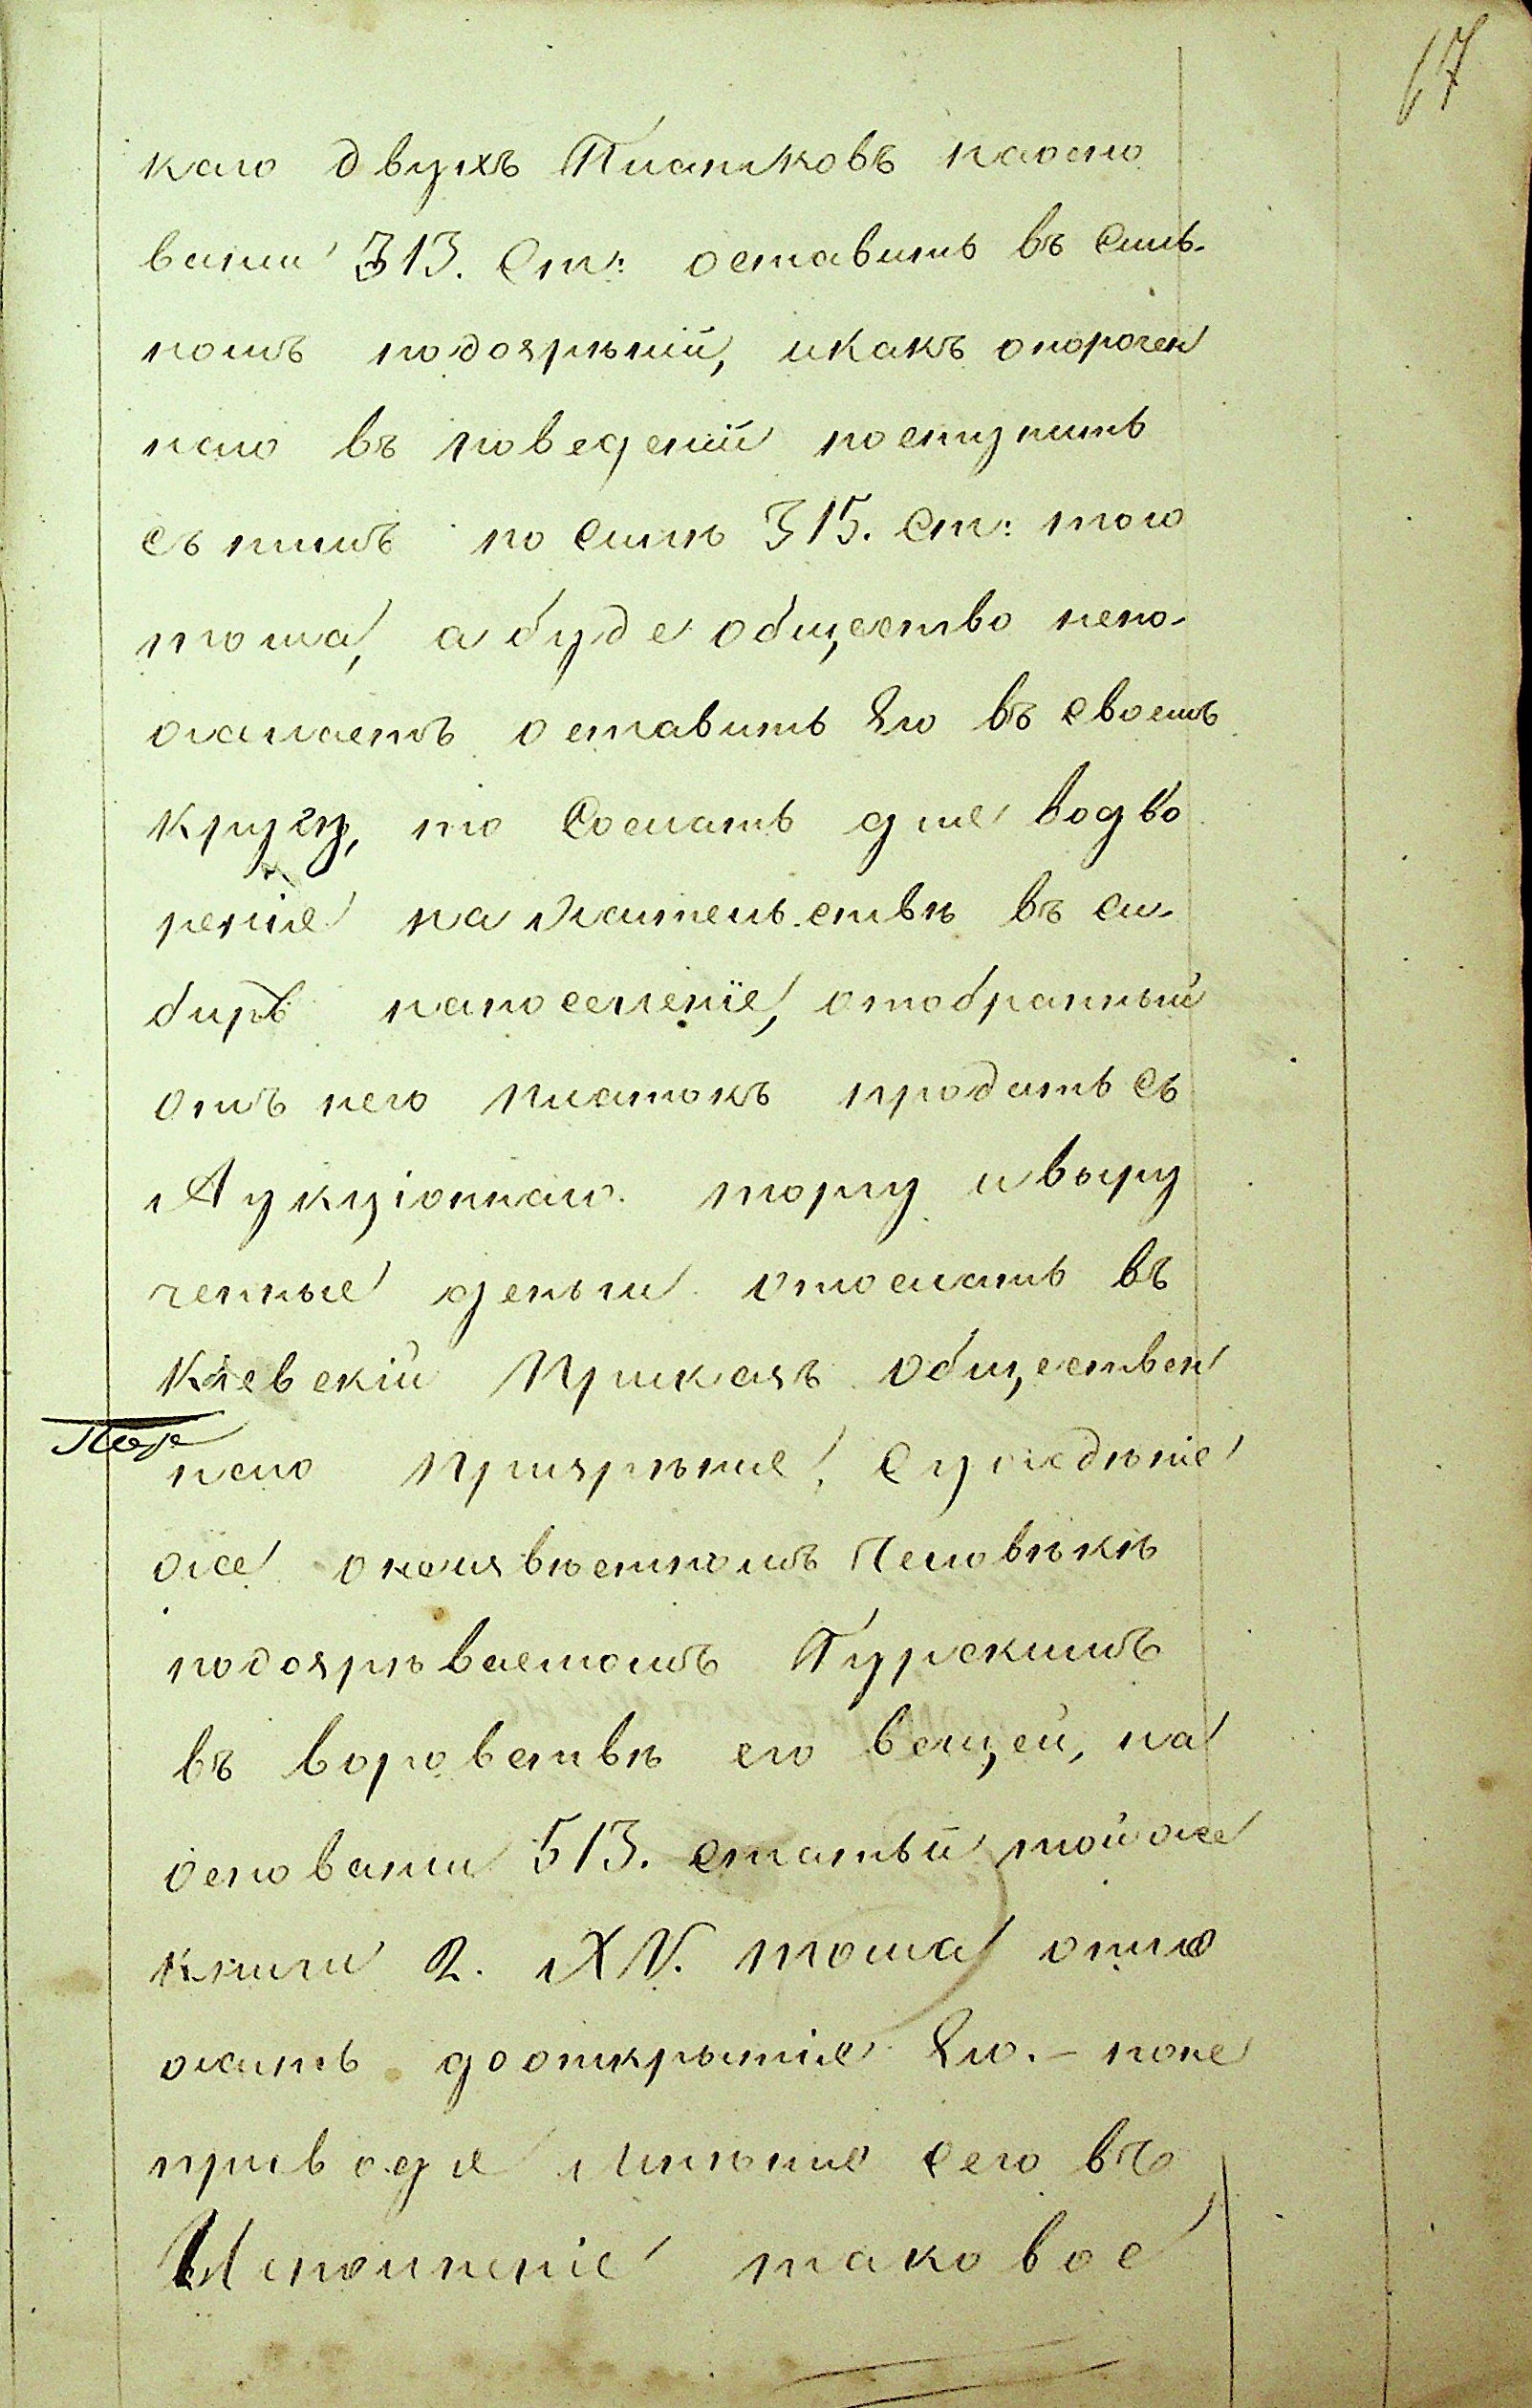 17
каго двухъ Платковъ наосно
ваніи 313. Ст: оставить въ силь-
номъ подозрѣніи, икакъ опорочен
наго въ поведеніи поступить
съ нимъ по силѣ 315. Ст: того
тома, а буде общество непо-
желаетъ оставить Его въ своемъ
кругу, то Сослать для водво
ренія на жительствѣ въ Си-
бирь напоселеніе, отобранный
отъ него платокъ продать съ
Аукціоннаго торгу и выру
ченные деньги отослать въ
Кіевскій Приказъ общественн
наго Призрѣнія, Сужденіе
же онеизвѣстномъ Человѣкѣ
подозрѣваемомъ Гурскимъ
въ воровствѣ его вещей, на
основаніи 513. статьи тойже
книги 2. XV. тома отло
жить дооткрытія Его.-ноне
приводя мнѣніе сего въ
Исполненіе таковое